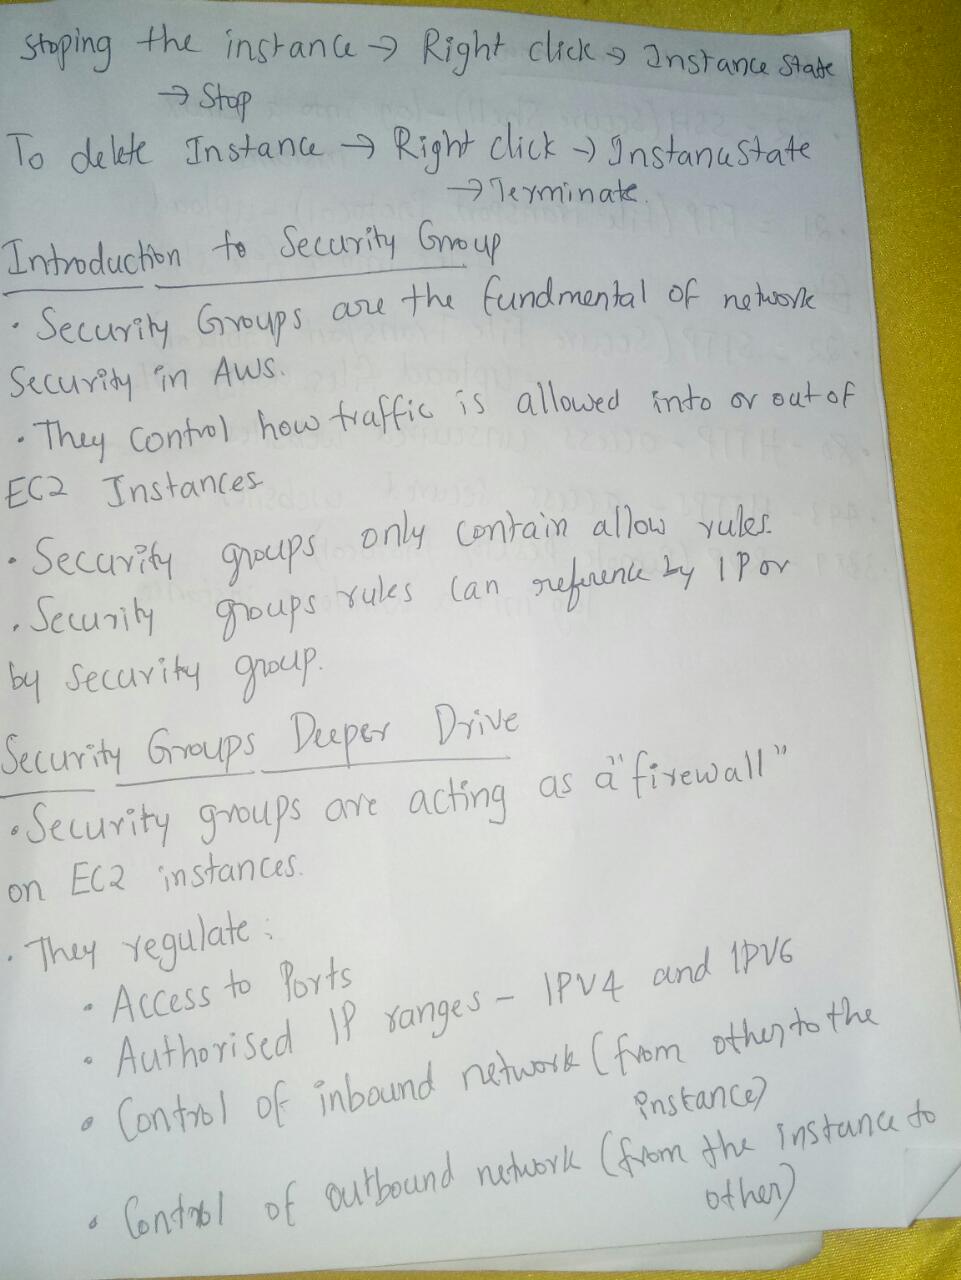 Stoping the instance → Right click → Instance State
→ Stop
To delete Instance → Right click → Instance State
→ Terminate.
Introduction to Security Group
• Security Groups are the fundmental of network
Security in AWS.
• They control how traffic is allowed into or out of
EC2 Instances
• Security groups only contain allow rules.
• Security groups rules can reference by IP or
by security group.
Security Groups Deeper Drive
• Security groups are acting as a "firewall"
on EC2 instances.
• They regulate :
• Access to Ports
• Authorised IP ranges - IPV4 and IPV6
• Control of inbound network (from other to the
instance)
• Control of outbound network (from the instance to
other)